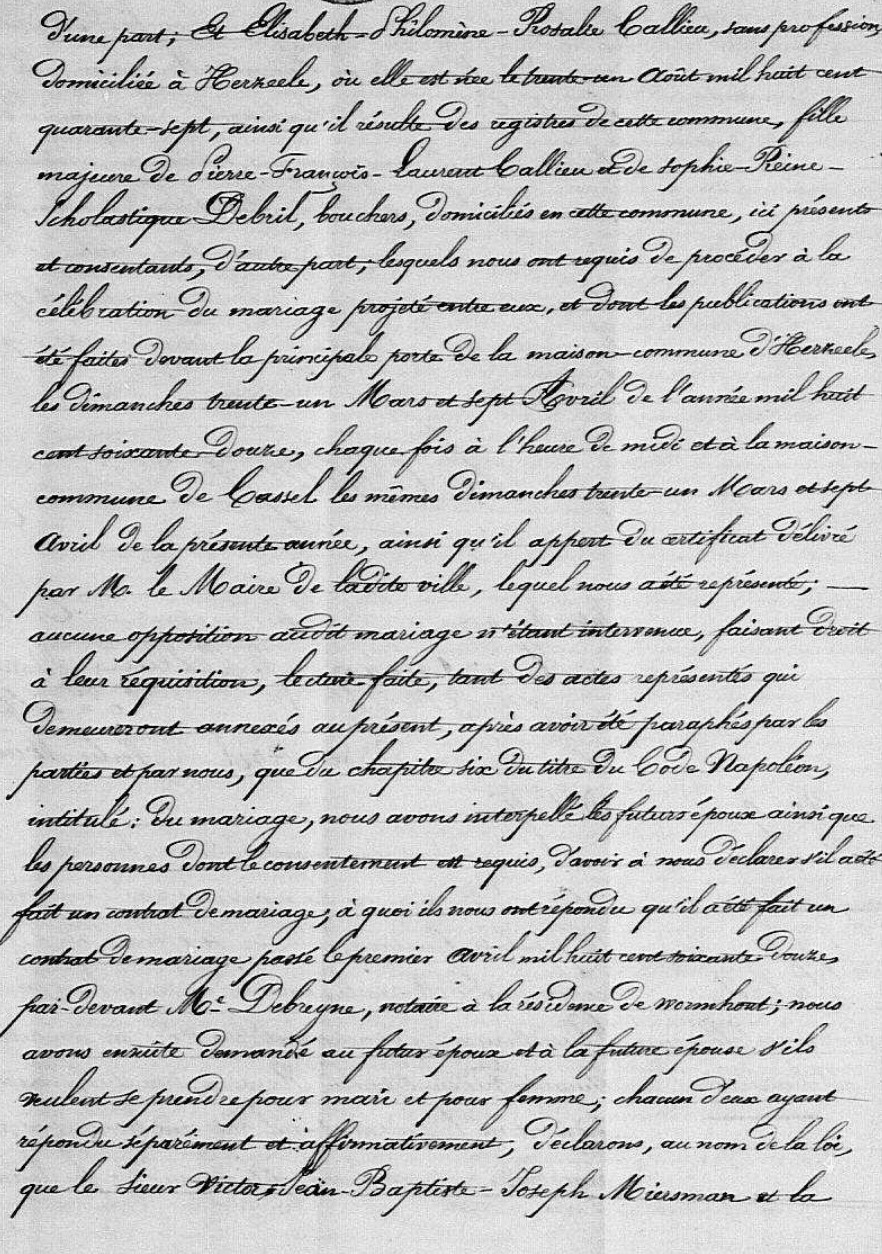 d'une part; Et Elisabeth-Philomène-Rosalie Callieu, sans profession,
domiciliée à Herzeele, où elle est née le trente-un Août mil huit cent
quarante-sept, ainsi qu'il résulte des registres de cette commune, fille
majeure de Pierre-François-Laurent Callieu et de Sophie-Reine-
Scholastique Debril, bouchers, domiciliés en cette commune, ici présents
et consentants, d'autre part; lesquels nous ont requis de procéder à la
célébration du mariage projeté entre eux, et dont les publications ont
été faites devant la principale porte de la maison-commune d'Herzeele,
les dimanches trente-un Mars et sept Avril de l'année mil huit
cent soixante-douze, chaque fois à l'heure de midi et à la maison-
commune de Cassel les mêmes dimanches trente-un Mars et sept
Avril de la présente année, ainsi qu'il appert du certificat délivré
par M. le Maire de ladite ville, lequel nous a été représenté; —
aucune opposition audit mariage n'étant intervenue, faisant droit
à leur réquisition, lecture faite, tant des actes représentés qui
demeureront annexés au présent, après avoir été paraphés par les
parties et par nous, que du chapitre six du titre du Code Napoléon,
intitulé: du mariage, nous avons interpellé les futurs époux ainsi que
les personnes dont le consentement est requis, d'avoir à nous déclarer s'il a été
fait un contrat de mariage; à quoi ils nous ont répondu qu'il a été fait un
contrat de mariage passé le premier Avril mil huit cent soixante-douze,
par-devant Me. Debreyne, notaire à la résidence de wormhout; nous
avons ensuite demandé au futur époux et à la future épouse s'ils
veulent se prendre pour mari et pour femme; chacun d'eux ayant
répondu séparément et affirmativement, déclarons, au nom de la loi,
que le sieur Victor-Jean-Baptiste-Joseph Miersman et la